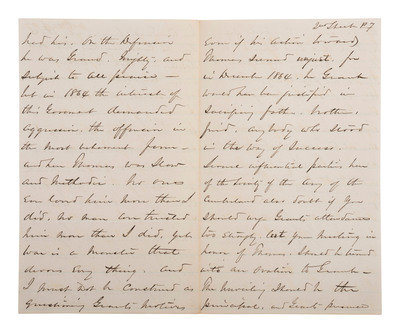 had his. On the Defensive
he was Grand. Mighty, and
subject to all praise —
but in 1864 the interest of
this Government demanded
Aggression, the offensive in
the most vehement form —
and here Thomas was Slow
and Methodic. No one
Ever loved him more than I
did, no man ever trusted
him more than I did. Yet
War is a Monster that
devours Every thing. and
I must not be Construed as
questioning Grants Motives
2nd Sheet P 7
Even if his action toward
Thomas Seemed unjust, for
in Decemb 1864. he Grant
would have been justified in
Sacrificing father, brother,
friend, anybody who stood
in the Way of Success.
Several influential parties here
of the Society of the Army of the
Cumberland also doubt if you
should urge Grants attendance
too strongly, lest your Meeting in
honor of Thomas should be turned
into an Ovation to Grant —
The Unveiling should be the
principal, and Grants presence